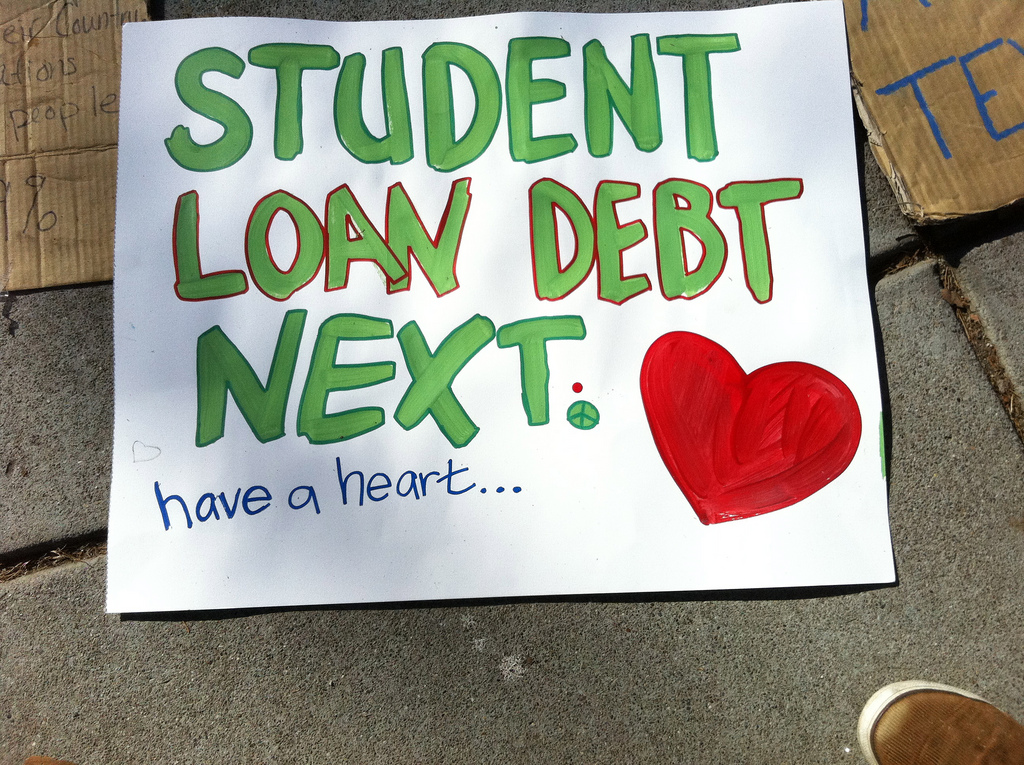 STUDENT
LOAN DEBT
NEXT.
have a heart...
Country
people
%
TE